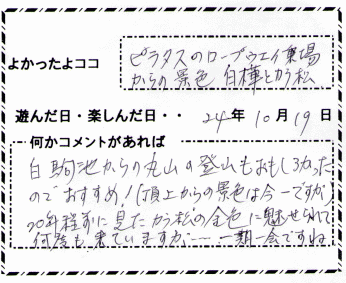 よかったよココ
ピラタスのロープウエイ乗場
からの景色 白樺とカラ松
遊んだ日・楽しんだ日・・ 24年10月19日
何かコメントがあれば
白駒池からの丸山の登山もおもしろかった
のでおすすめ!(頂上からの景色は今一ですが)
20年程前に見たカラ松の金色に魅せられて
何度も来ていますが…… 一期一会ですね